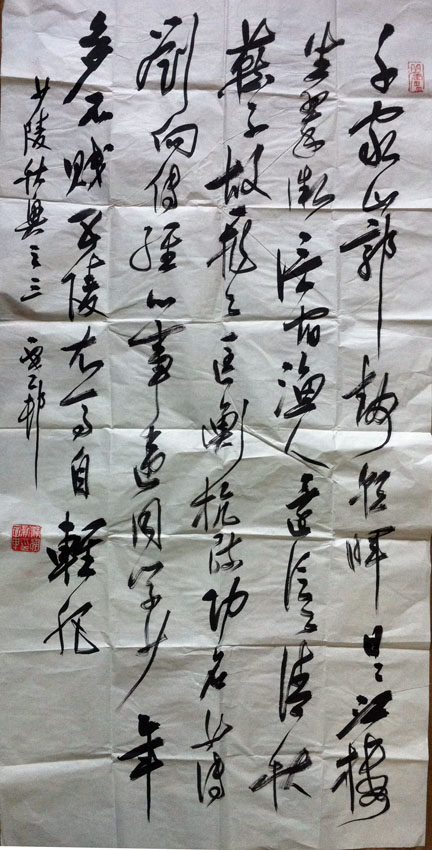 千家山郭静朝暉日〻江樓
坐翠微信宿漁人還泛〻清秋
燕子故飛〻匡衡抗疏功名薄
劉向傳經心事違同学少年
多不賤五陵衣馬自輕肥
少陵秋興之三